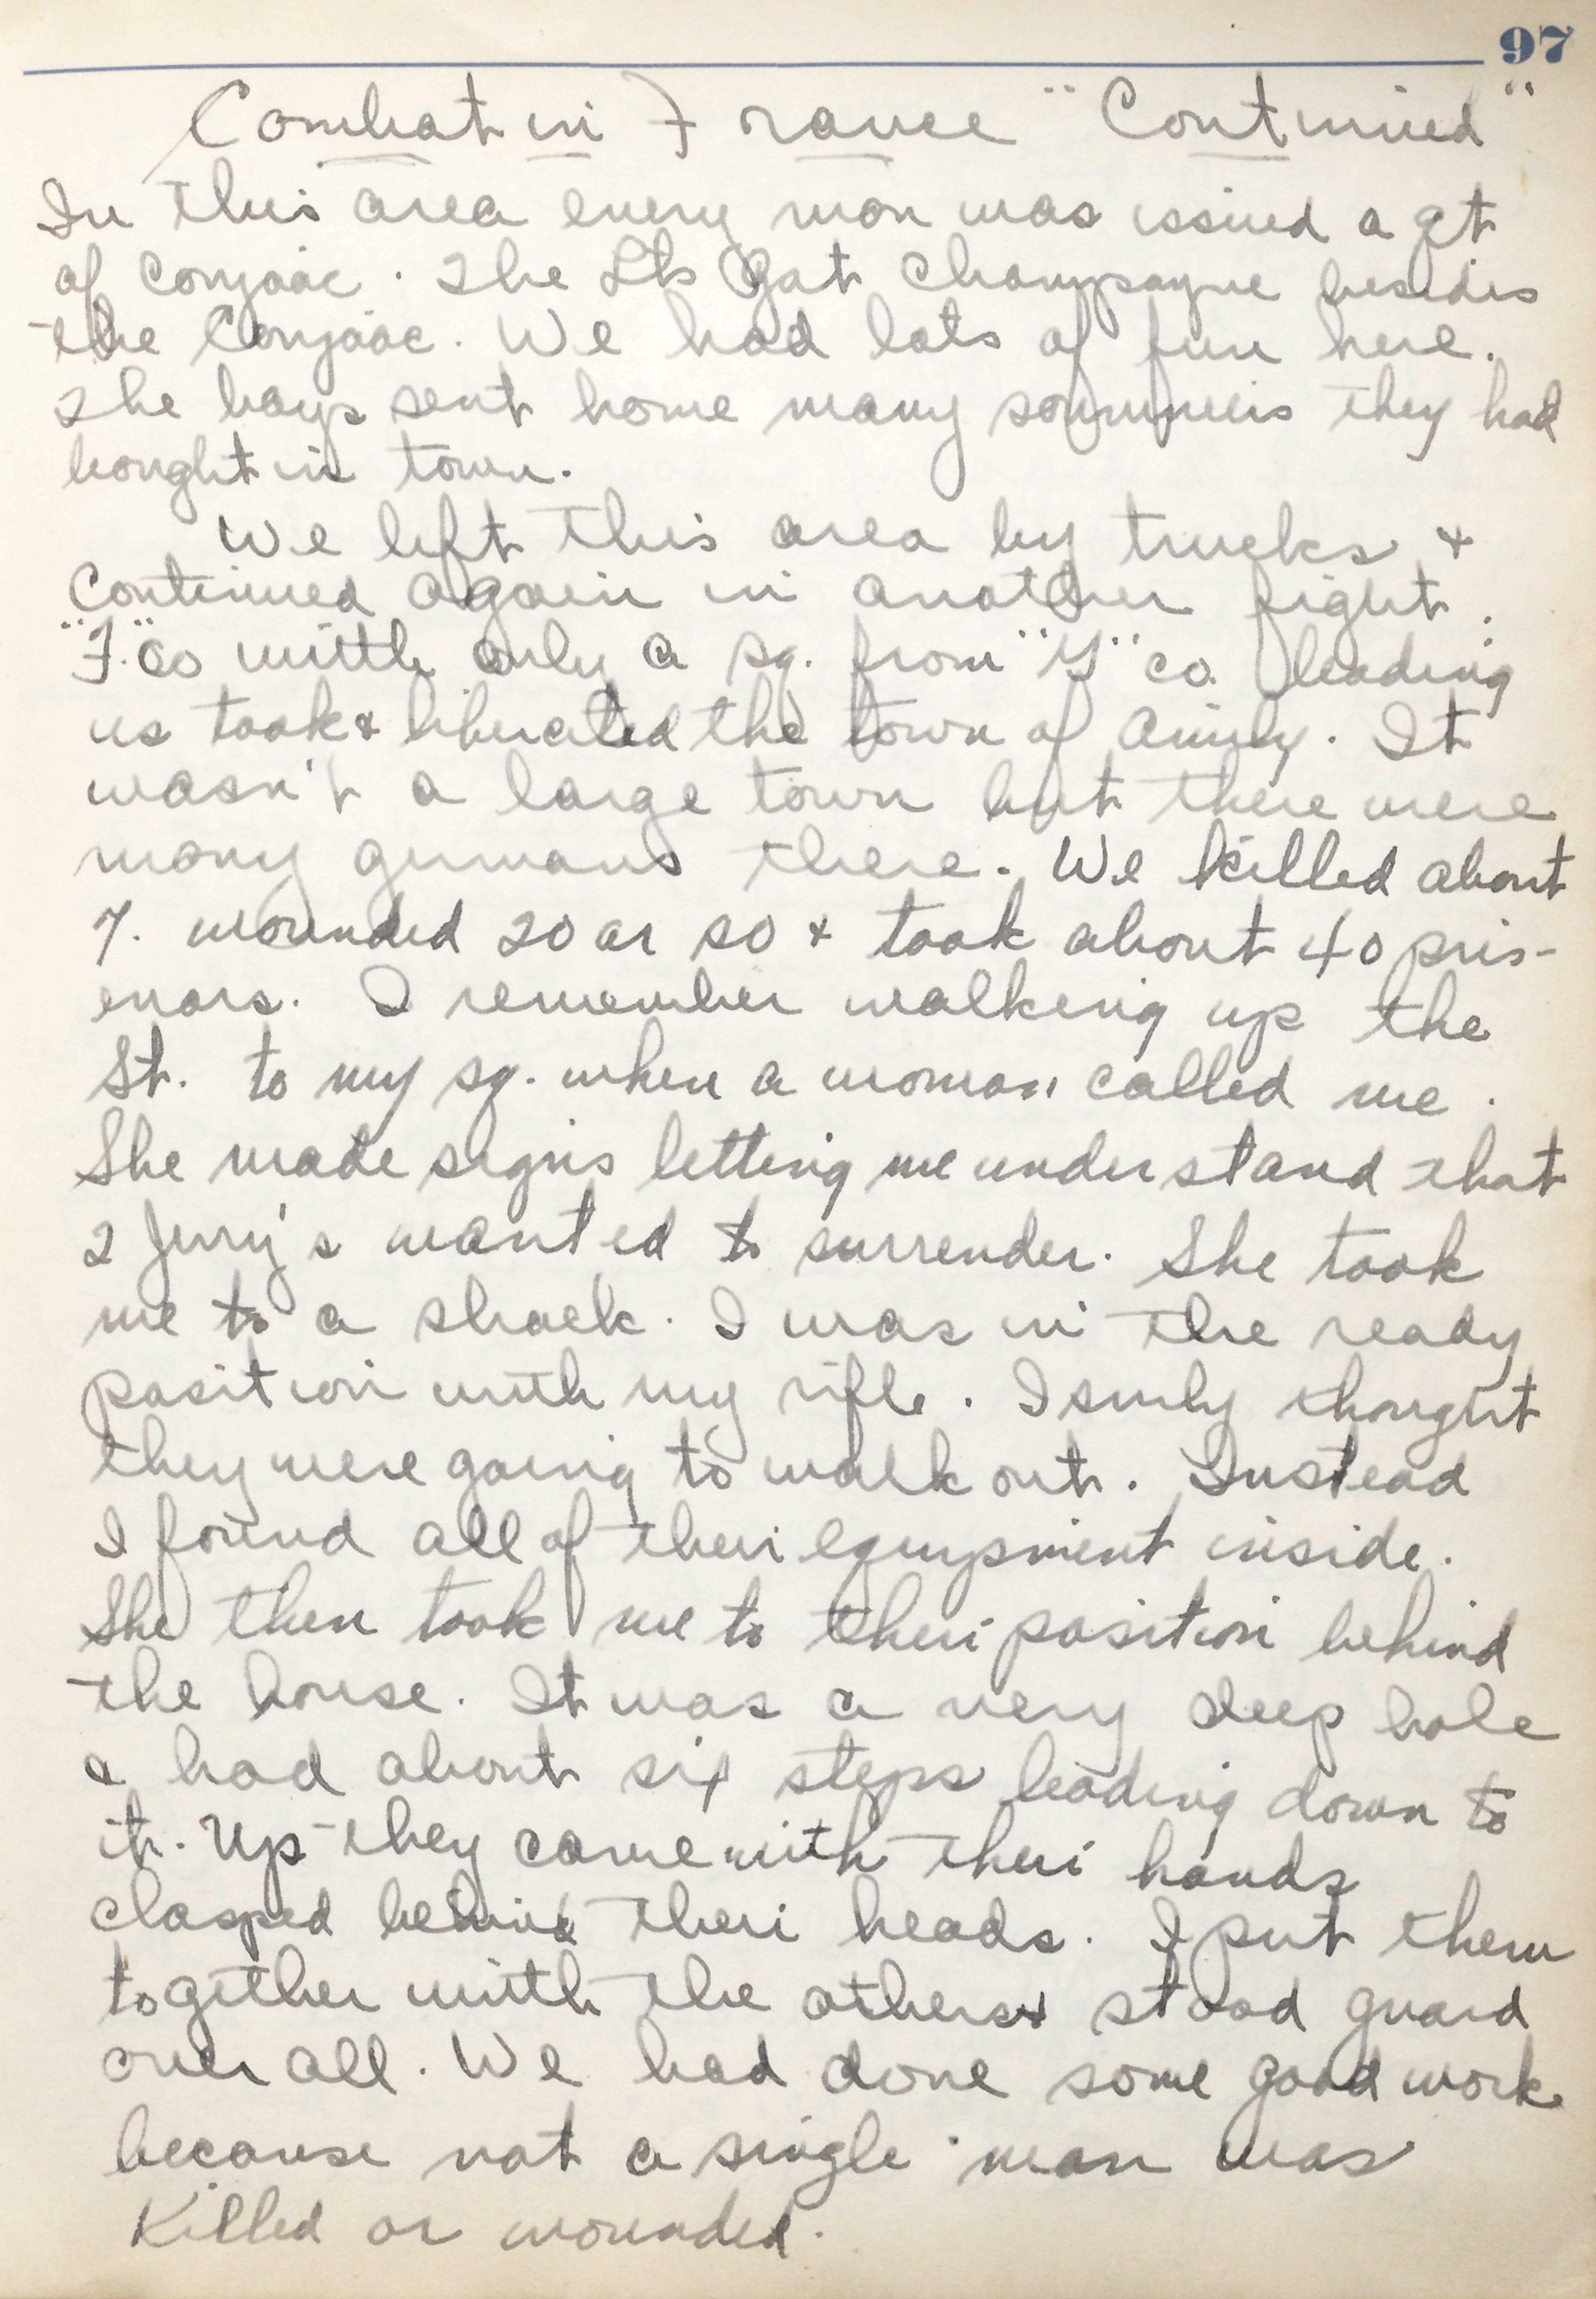 97
Combat in France "Continued"
In this area every man was issued a qt
of Conjaac. The Lts got Champagne besides
the Conjaac. We had lots of fun here.
The boys sent home many they had
bought in town.
We left this area by trucks &
Continued again in another fight.
"F" co with only a sq. from "G" co. leading
us took & liberated the town of. It
wasn't a large town but there were
many germans there. We killed about
7. wounded 20 or so & took about 40 pris-
enors. I remember walking up the
St. to my sq. when a woman called me.
She made signs letting me understand that
2 Jerry's wanted to surrender. She took
me to a shack. I was in the ready
position with my rifle. I surely thought
they were going to walk out. Instead
I found all of their equipment inside.
She then took me to their position behind
the house. It was a very deep hole
& had about six steps leading down to
it. Up they came with their hands
clasped behind their heads. I put them
together with the others & stood guard
over all. We had done some good work
because not a single man was
Killed or wounded.